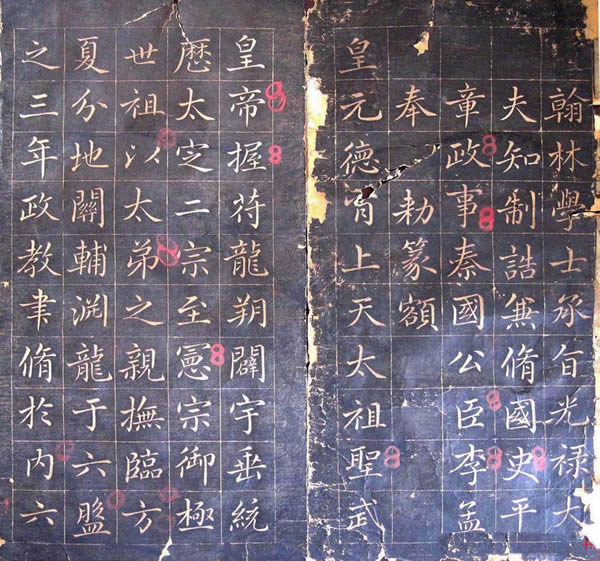 翰林學士承旨光禄大
夫知制誥兼脩國史平
章政事秦國公臣李孟
奉勑篆額
皇元德肖上天太祖聖武
皇帝握符龍朔闢宇垂統
厯太定二宗至憲宗御極
世祖以太弟之親撫臨方
夏分地關輔渊龍于六盤
之三年政教聿脩於内六